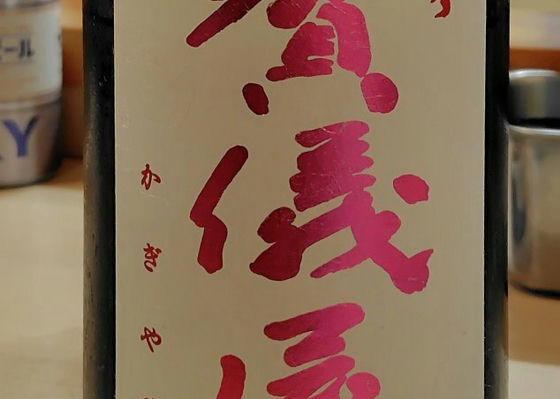 賀儀屋
かぎや
ール